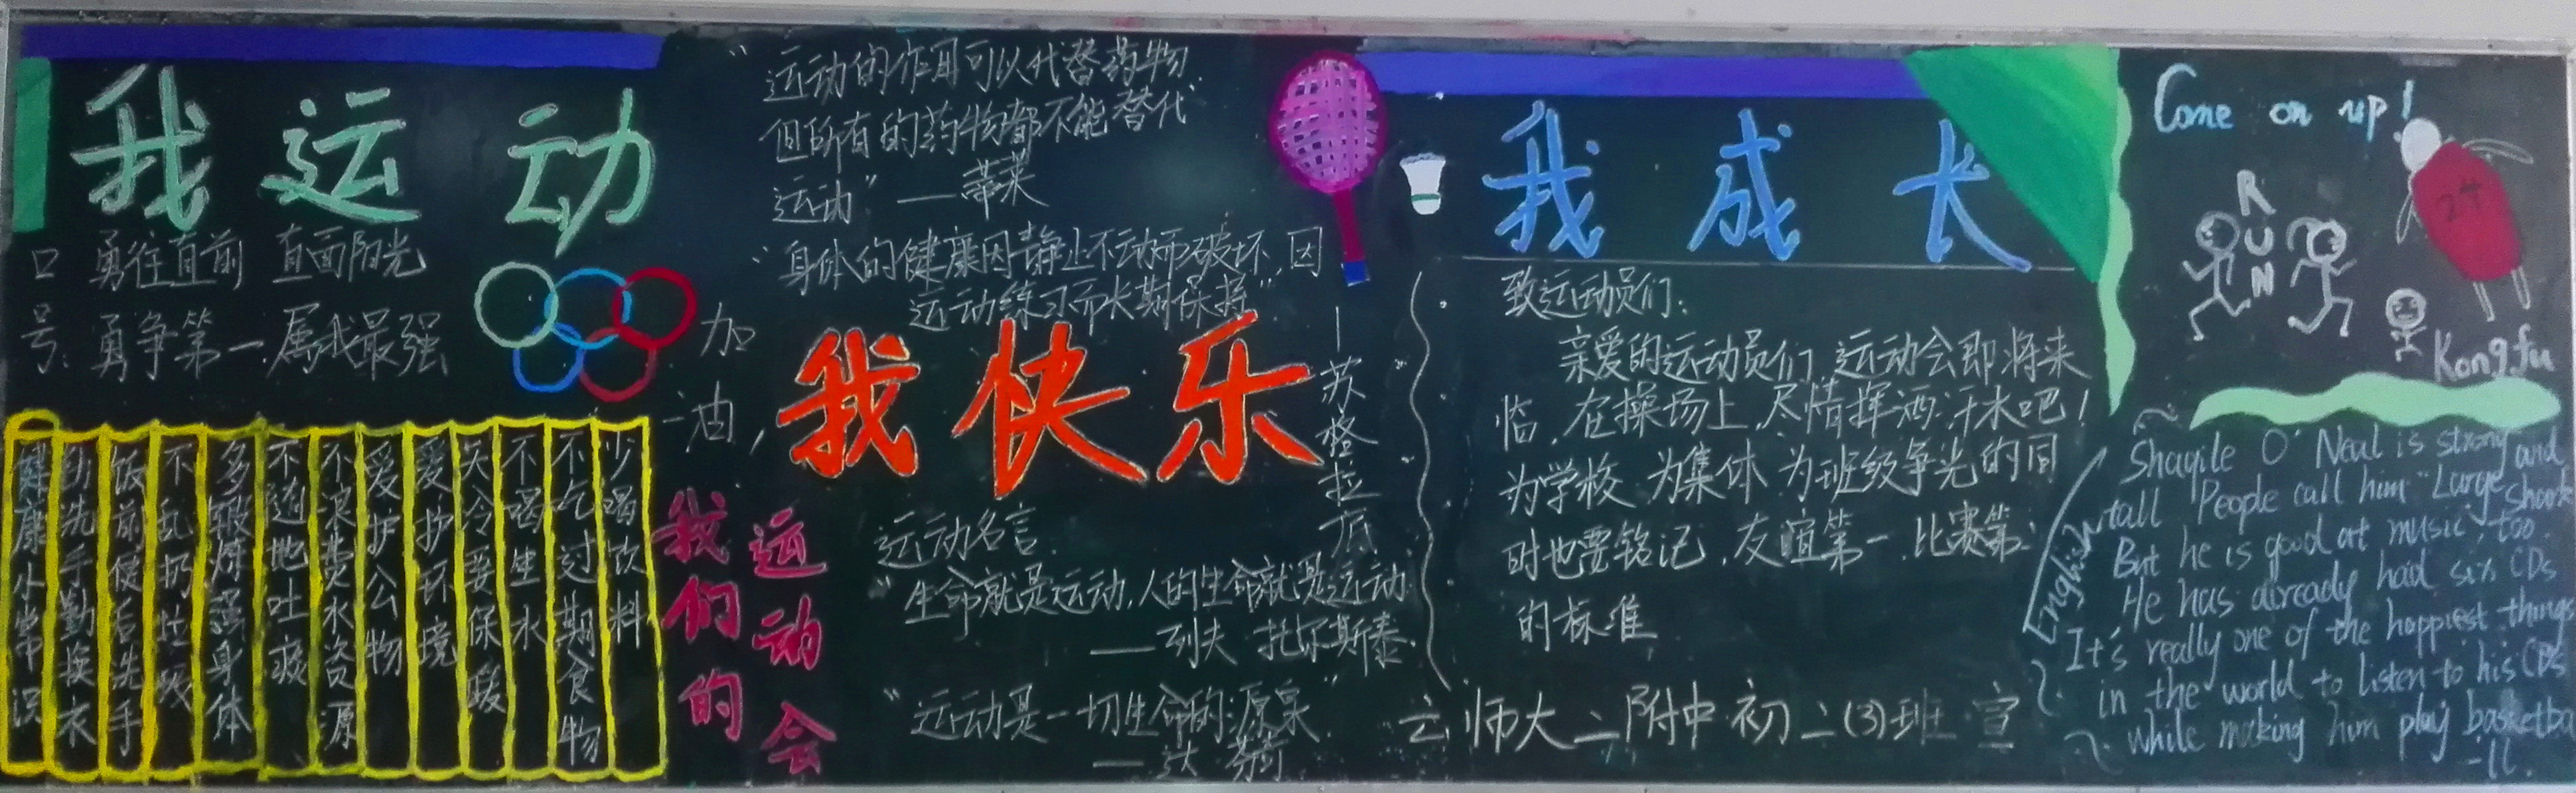 我运动
口 勇往直前 直面阳光
号: 勇争第一 属我最强
加
油
健康小常识
勤洗手勤换衣
饭前便后洗手
不乱扔垃圾
多锻炼强身体
不随地吐痰
不浪费水资源
爱护公物
爱护环境
天冷要保暖
不喝生水
不吃过期食物
少喝饮料
我们的
运动会
“运动的作用可以代替药物
但所有的药物都不能替代
运动”——蒂莱
“身体的健康因静止不动而破坏,因
运动练习而长期保持”
—苏格拉底
我快乐
运动名言
“生命就是运动,人的生命就是运动
——列夫 托尔斯泰
“运动是一切生命的源泉
——达 芬奇
我成长
致运动员们:
亲爱的运动员们 运动会即将来
临,在操场上,尽情挥洒汗水吧!
为学校 为集体 为班级争光的同
时也要铭记,友谊第一,比赛第二
的标准
云师大二附中初二(3)班 宣
Come on up!
RUN
24
Kongfu
English
Shaqile O' Neal is strong and
tall People call him "Large Shark
But he is good at music, too.
He has already had six CDs
It's really one of the happiest things
in the world to listen to his CDs
while making him play basketba
-ll.